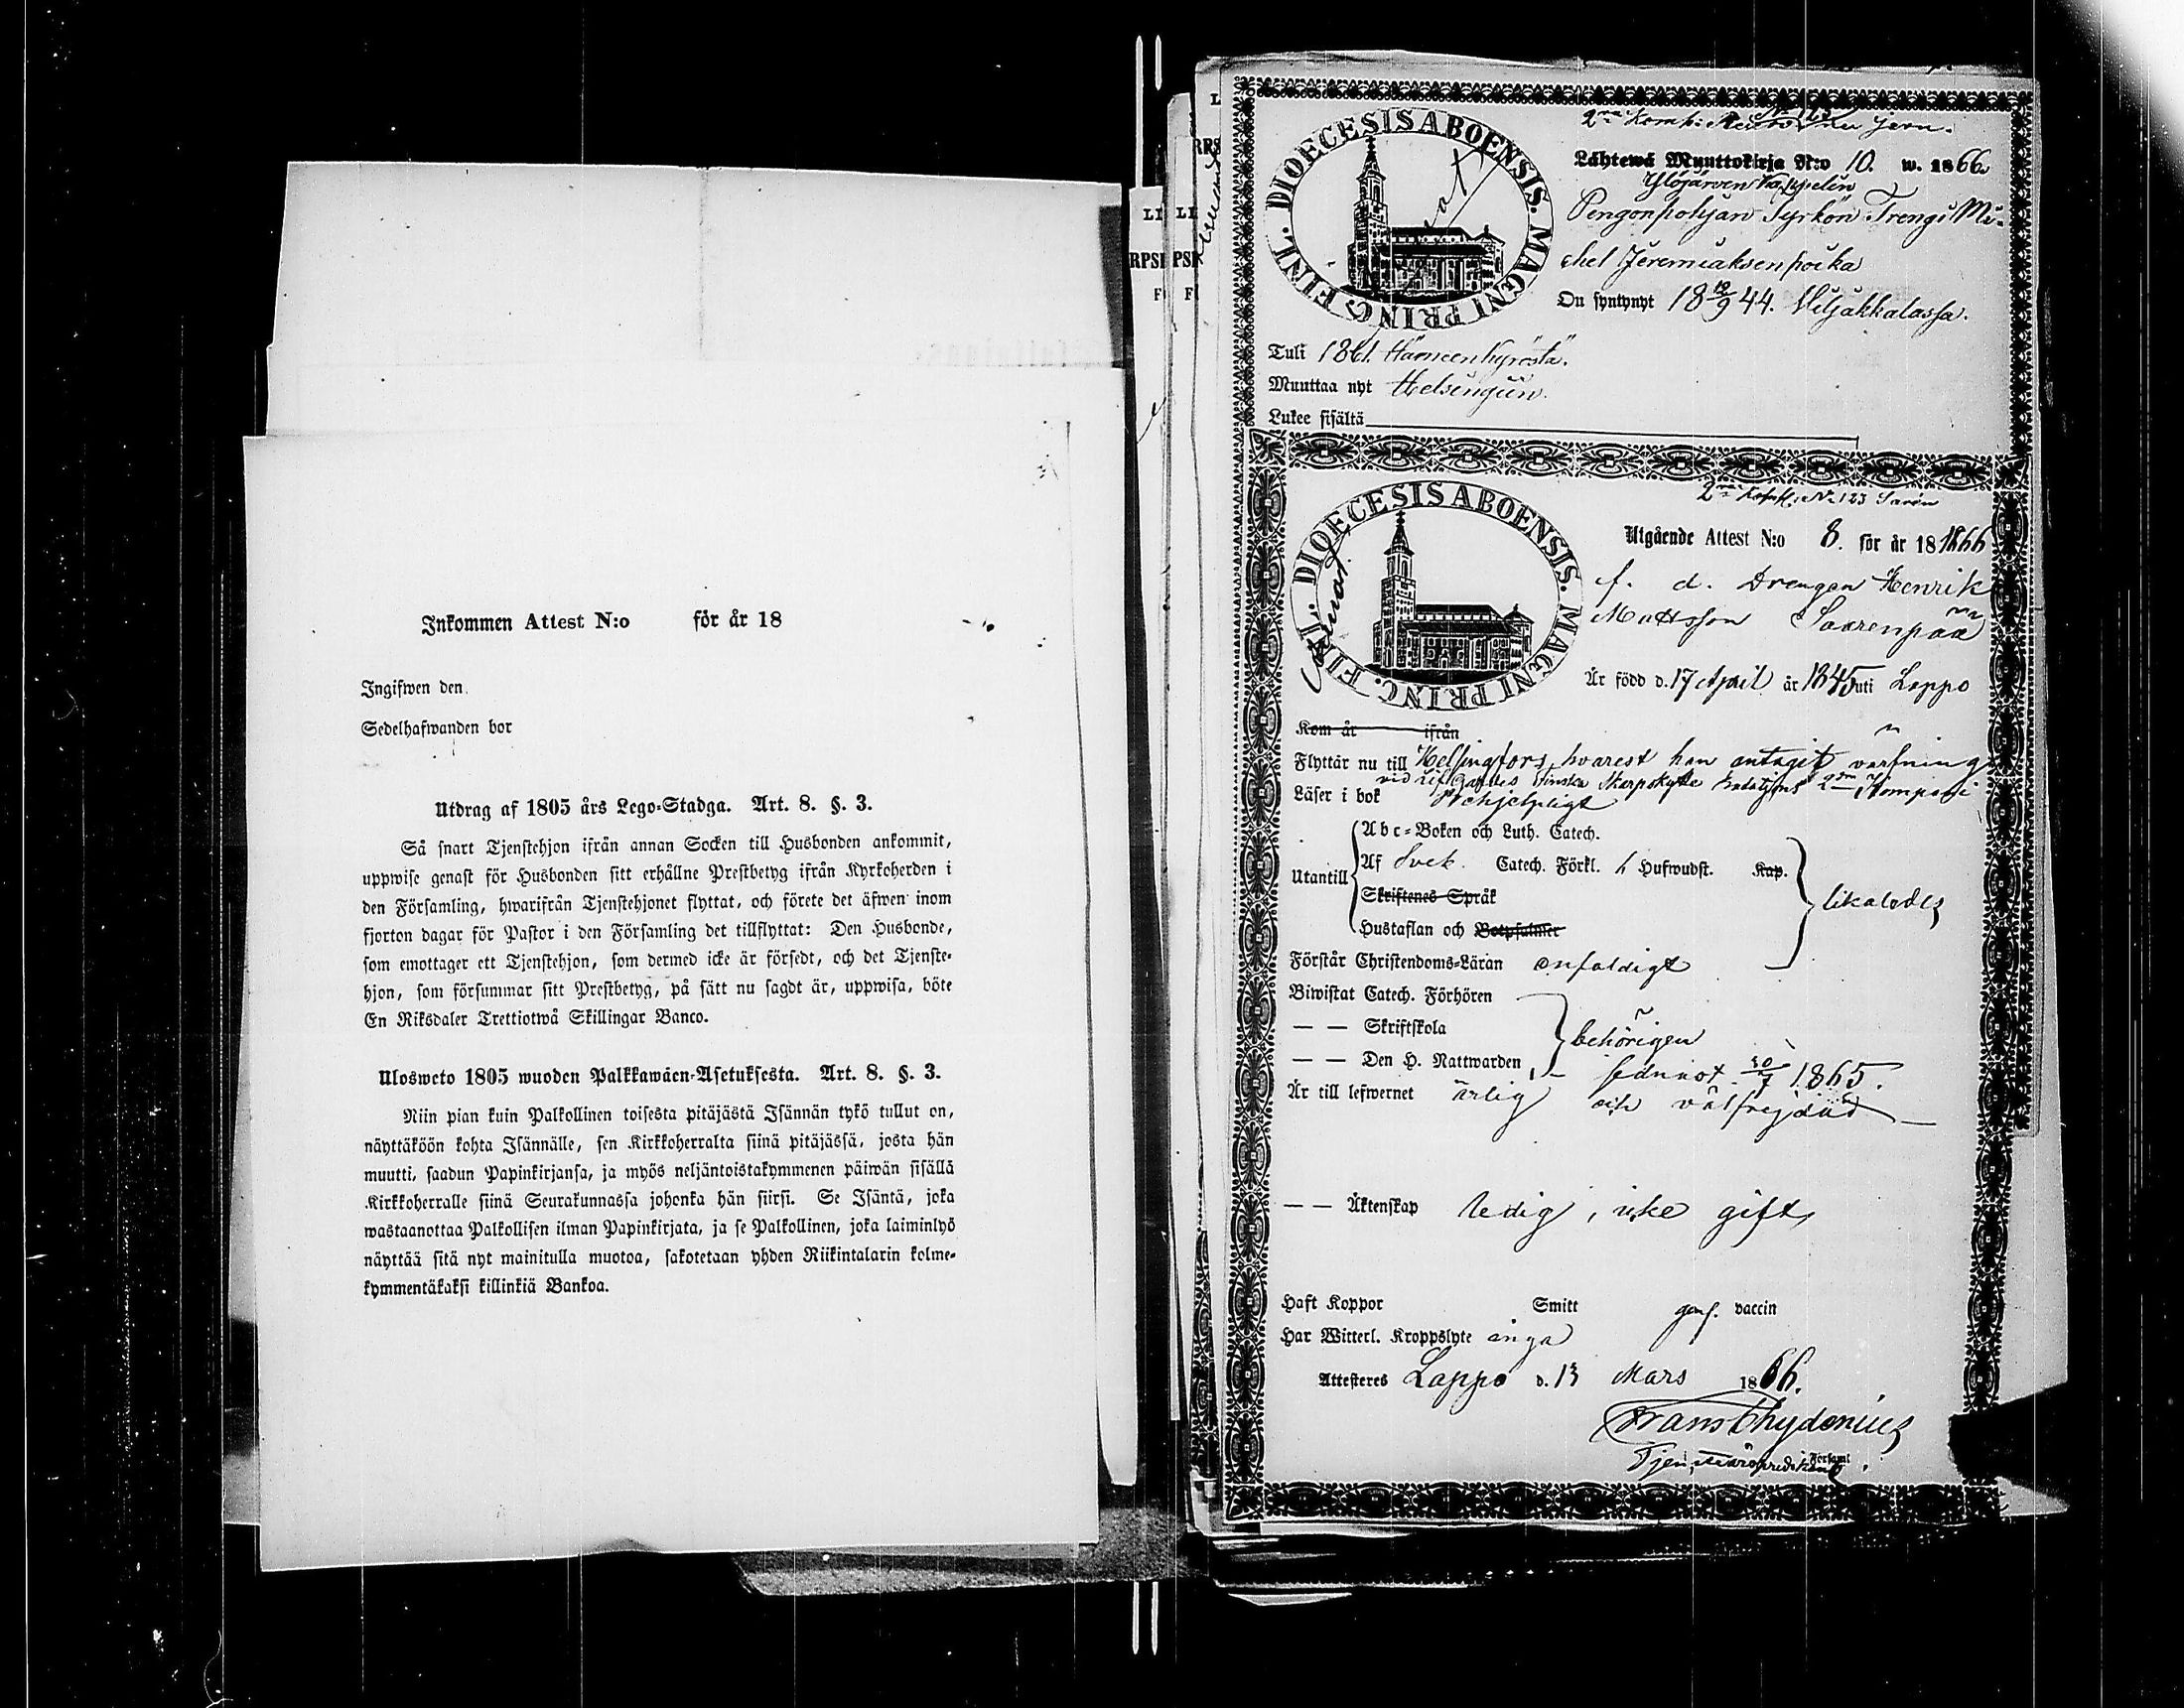 Inkommen Attest N:o för år 18
Ingifwen den
Sedelhafwanden bor
Utdrag af 1805 års Lego-Stadga. Art. 8. §. 3.
Så snart Tjenstehjon ifrån annan Socken till Husbonden ankommit,
uppwise genast för Husbonden sitt erhållne Prestbetyg ifrån Kyrkoherden i
den Församling, hwarifrån Tjenstehjonet flyttat, och förete det äfwen inom
fjorton dagar för Pastor i den Församling det tillflyttat: Den Husbonde,
som emottager ett Tjenstehjon, som dermed icke är försedt, och det Tjenste-
hjon, som försummar sitt Prestbetyg, på sätt nu sagdt är, uppwisa, böte
En Riksdaler Trettiotwå Skillingar Banco.
Ulosweto 1805 wuoden Palkkawäen-Asetuksesta. Art. 8. §. 3.
Niin pian kuin Palkollinen toisesta pitäjästä Isännän tykö tullut on,
näyttäköön kohta Isännälle, sen Kirkkoherralta siinä pitäjässä, josta hän
muutti, saadun Papinkirjansa, ja myös neljäntoistakymmenen päiwän sisällä
Kirkkoherralle siinä Seurakunnassa johonka hän siirsi. Se Isäntä, joka
wastaanottaa Palkollisen ilman Papinkirjata, ja se Palkollinen, joka laiminlyö
näyttää sitä nyt mainitulla muotoa, sakotetaan yhden Riikintalarin kolme-
kymmentäkaksi killinkiä Bankoa.
DIOECESIS ABOENSIS. MAGNI PRINC. FINL.
Lähtewä Muuttokirja N:o 10. w. 1866.
Ylöjärven Kappelin
Pengonpohjan Tyrkön Trengi Mi-
chel Jeremiaksenpoika
On syntynyt 18 12/9 44. Viljakkalassa.
Tuli 1861. Hämeenkyröstä.
Muuttaa nyt Helsingiin.
Lukee sisältä
2:a Komp: N: 123 Sarén
DIOECESIS ABOENSIS. MAGNI PRINC. FINL.
Utgående Attest N:o 8. för år 18 1866
f. d. Drengen Henrik
Mattsson Saarenpää
Är född d. 17 April år 1845 uti Lappo
Kom år ifrån
Flyttar nu till Helsingfors, hvarest han antagit värfning
vid Lif Gardes Finska Skarpskytte Bataljons 2dra Kompani
Läser i bok Nöjhjelpligt
Abc-Boken och Luth. Catech.
Utantill Af Sveb. Catech. Förkl. 4 Hufwudst. Kap.
likaledes
Skriftenes Språk
Hustaflan och Botpsalmer
Förstår Christendoms-Läran enfaldigt
Biwistat Catech. Förhören
— — Skriftskola behörigen
— — Den H. Nattwarden, sednast 30/7 1865.
Är till lefwernet ärlig och välfrejdad
— — Äktenskap ledig, icke gift
Haft Koppor Smitt genf. vaccin
Har Witterl. Kroppslyte inga
Attesteres Lappo d. 13 Mars 1866.
Frans Chydenius